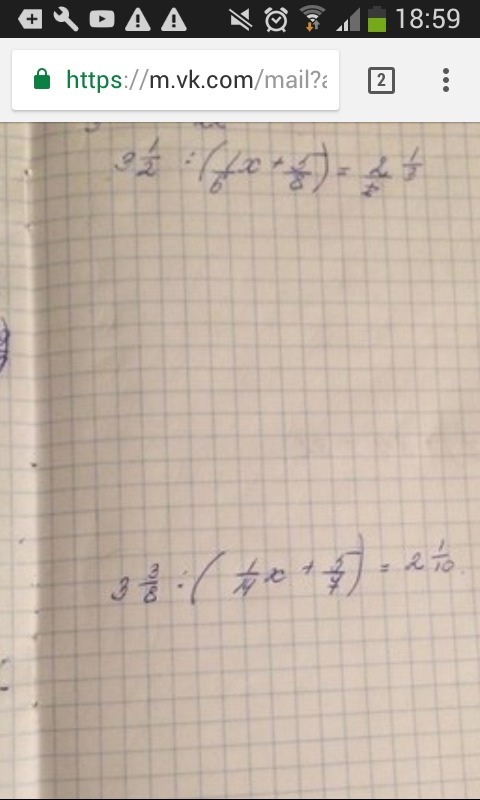 18:59
https://m.vk.com/mail?a
2
3 1/2 : (1/6 x + 5/8) = 2 1/3
3 3/8 : (1/14 x + 2/7) = 2 1/10